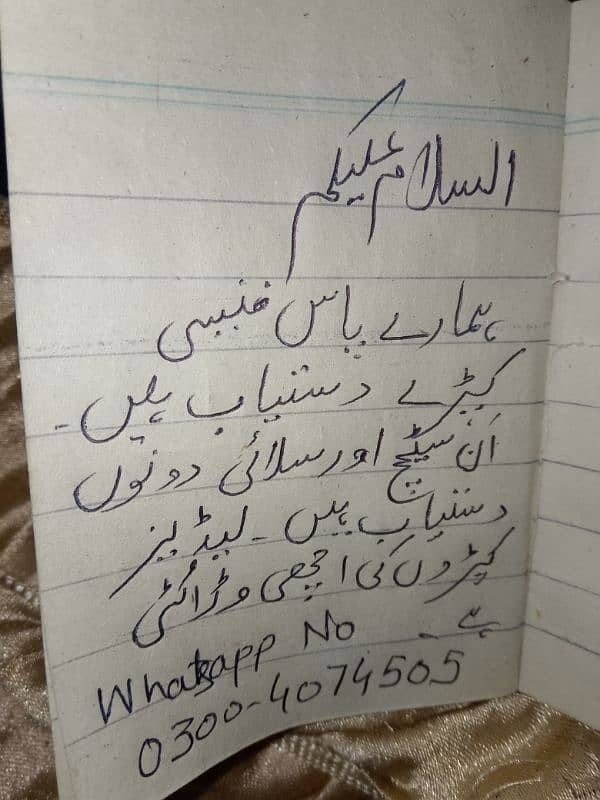 السلام علیکم
ہمارے پاس فینسی
کپڑے دستیاب ہیں۔
اَن سٹیچ اور سلائی دونوں
دستیاب ہیں۔ لیڈیز
کپڑوں کی اچھی وڑائٹی
ہے۔
Whatsapp No
0300-4074505